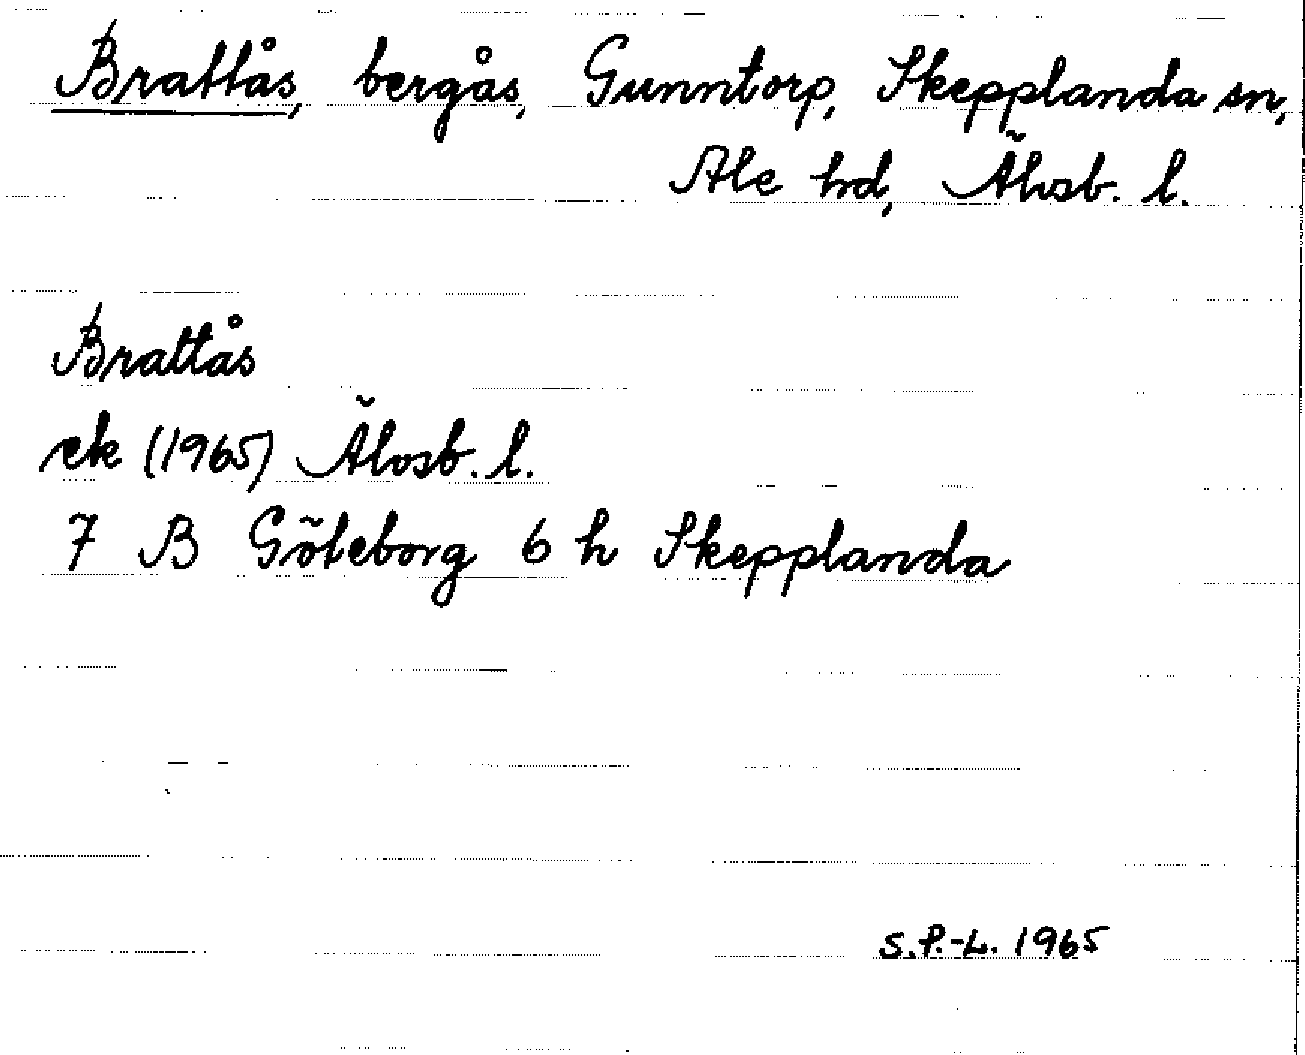 Brattås, bergås, Gunntorp, Skepplanda sn,
Ale hd, Älvsb. l.
Brattås
ek (1965) Älvsb. l.
7 B Göteborg 6 h Skepplanda
S.P.-L. 1965